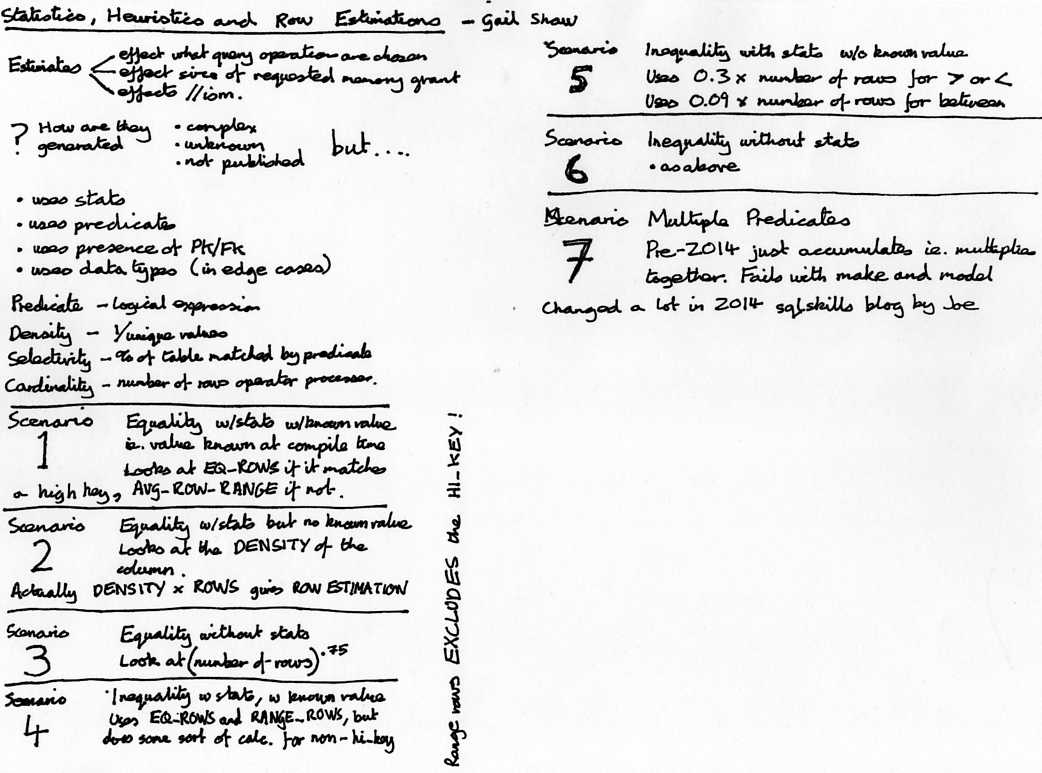 Statistics, Heuristics and Row Estimations - Gail Shaw
Estimates
effect what query operation are chosen
effect size of requested memory grant
effects //ism.
? How are they
generated
• complex
• unknown
• not published
but....
• uses stats
• uses predicates
• uses presence of PK/FK
• uses data types (in edge cases)
Predicate - logical expression
Density - 1/unique values
Selectivity - % of table matched by predicate
Cardinality - number of rows operator processes.
Scenario 1
Equality w/stats w/known value
ie. value known at compile time
Looks at EQ-ROWS if it matches
a high key, AVG-ROW-RANGE if not.
Scenario 2
Equality w/stats but no known value
Looks at the DENSITY of the
column.
Actually DENSITY × ROWS gives ROW ESTIMATION
Scenario 3
Equality without stats
Look at (number of rows)^.75
Scenario 4
Inequality w stats, w known value
Uses EQ-ROWS and RANGE-ROWS, but
does some sort of calc. for non-hi-key
Range rows EXCLUDES the HI-KEY!
Scenario 5
Inequality with stats w/o known value
Uses 0.3 × number of rows for > or <
Uses 0.09 × number of rows for between
Scenario 6
Inequality without stats
• as above
Scenario 7
Multiple Predicates
Pre-2014 just accumulates ie. multiplies
together. Fails with make and model
Changed a lot in 2014 sqlskills blog by Joe